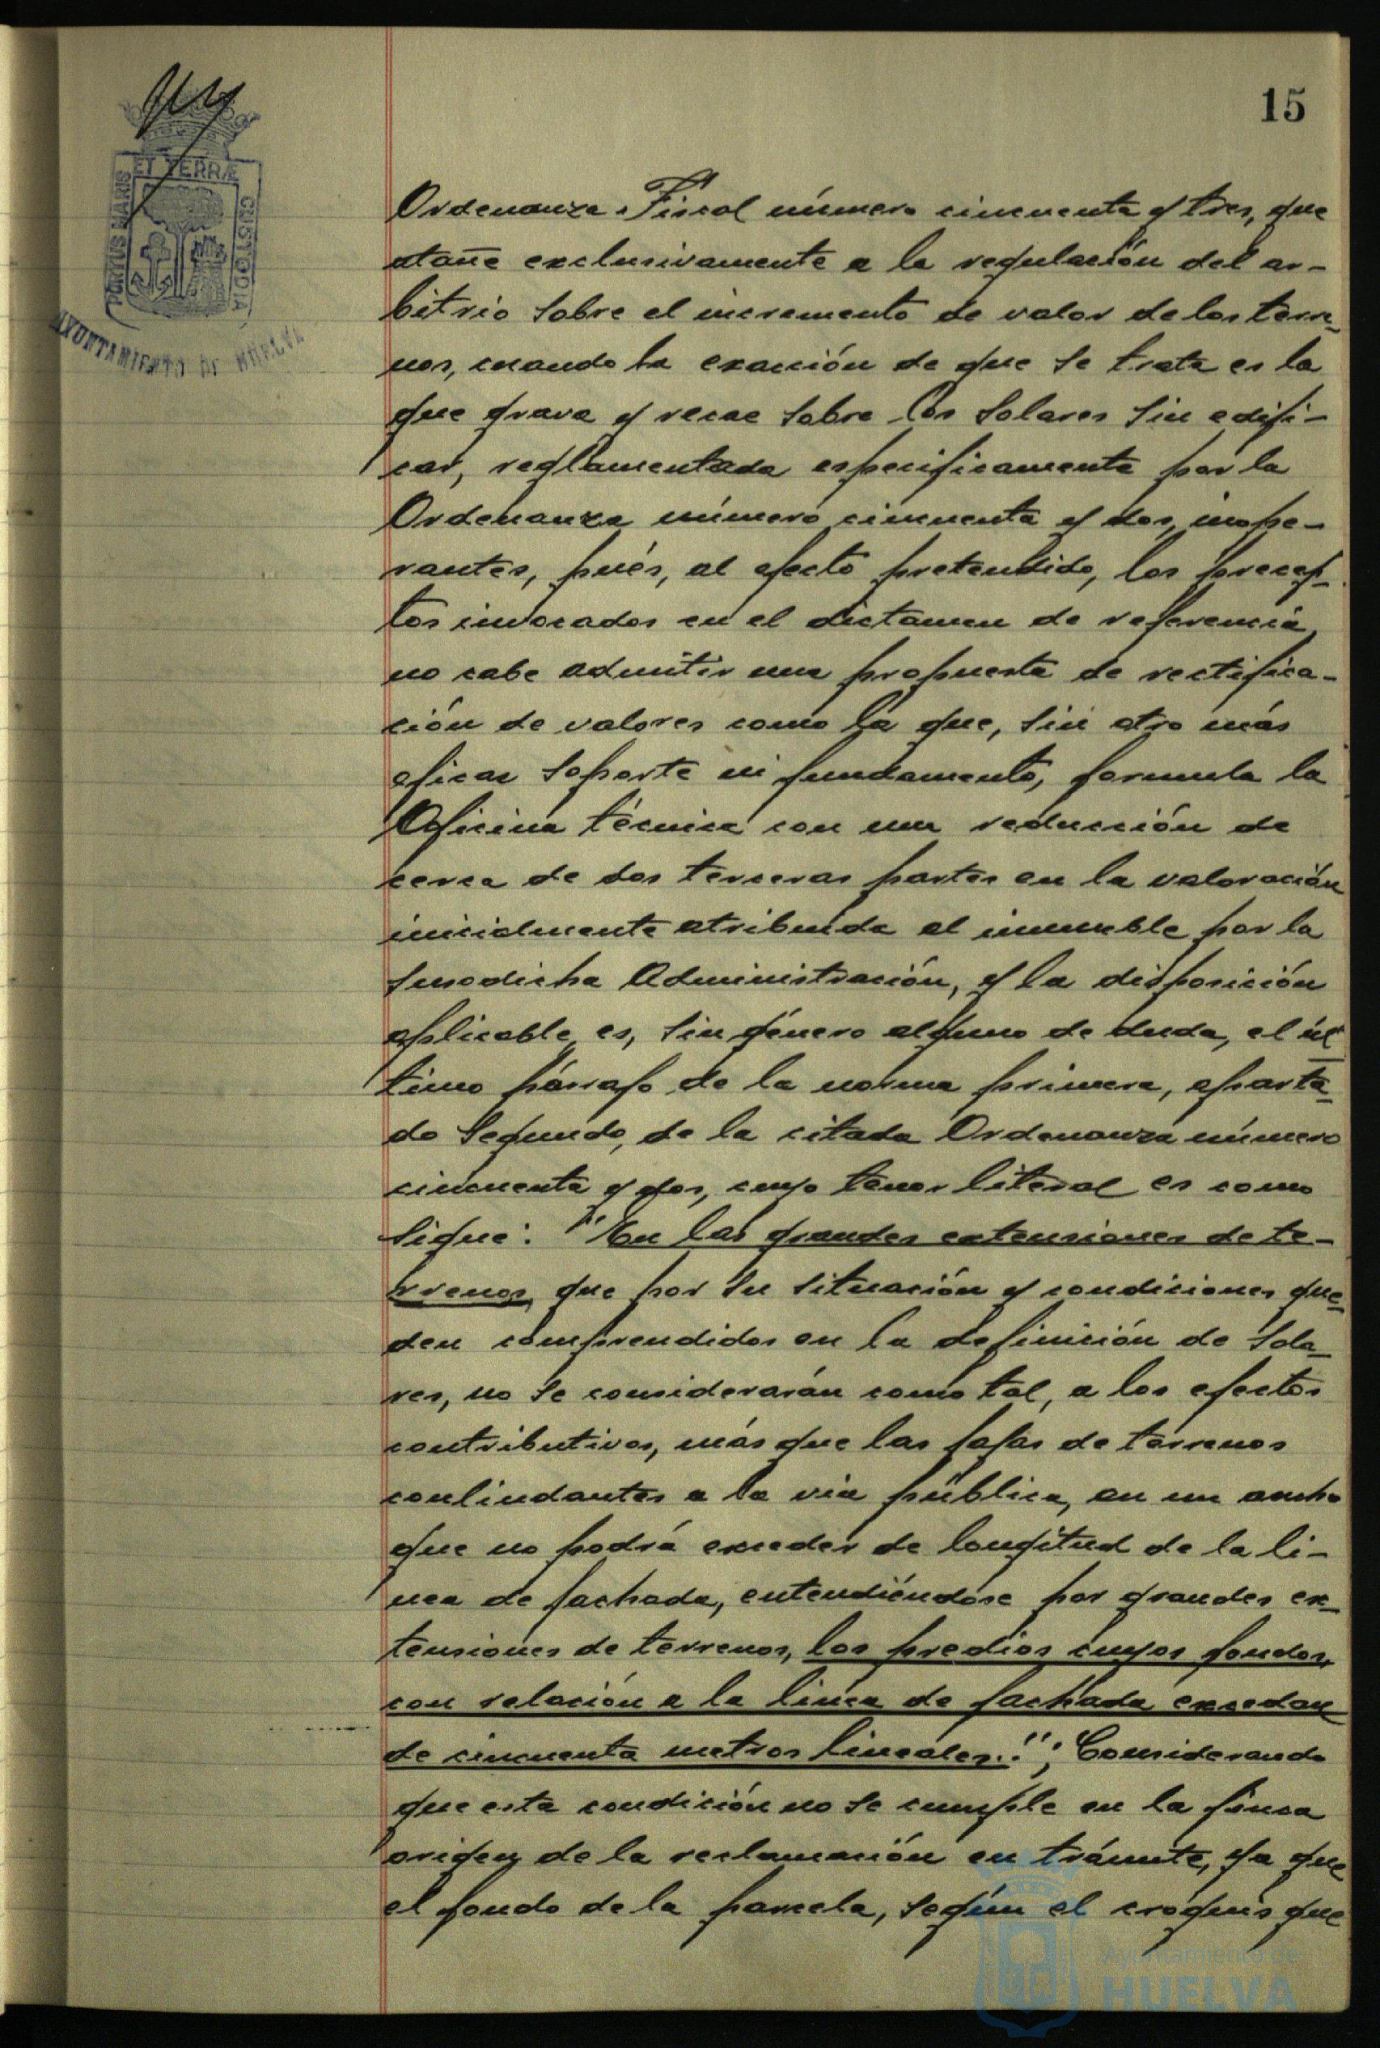 15
PORTUS MARIS
ET TERRÆ
CUSTODIA
AYUNTAMIENTO DE HUELVA
Ordenanza Fiscal número cincuenta y tres, que
atañe exclusivamente a la regulación del ar-
bitrio sobre el incremento de valor de los terre-
nos, cuando la exacción de que se trata es la
que grava y recae sobre los solares sin edifi-
car, reglamentada especificamente por la
Ordenanza número cincuenta y dos, inope-
rantes, pués, al efecto pretendido, los precep-
tos invocados en el dictamen de referencia,
no cabe admitir una propuesta de rectifica-
ción de valores como la que, sin otro más
eficaz soporte ni fundamento, formula la
Oficina técnica con una reducción de
cerca de dos terceras partes en la valoración
inicialmente atribuida al inmueble por la
susodicha Administración, y la disposición
aplicable es, sin género alguno de duda, el úl
timo párrafo de la norma primera, aparta-
do segundo, de la citada Ordenanza número
cincuenta y dos, cuyo tenor literal es como
sigue: "En las grandes extensiones de te-
rrenos, que por su situación y condiciones que-
den comprendidos en la definición de sola-
res, no se considerarán como tal, a los efectos
contributivos, más que las fajas de terrenos
conlindantes a la via pública, en un ancho
que no podrá exceder de longitud de la li-
nea de fachada, entendiéndose por grandes ex-
tensiones de terrenos, los predios cuyos fondos,
con relación a la linea de fachada excedan
de cincuenta metros lineales.."; Considerando
que esta condición no se cumple en la finca
origen de la reclamación en trámite, ya que
el fondo de la parcela, según el croquis que
Ayuntamiento de
HUELVA